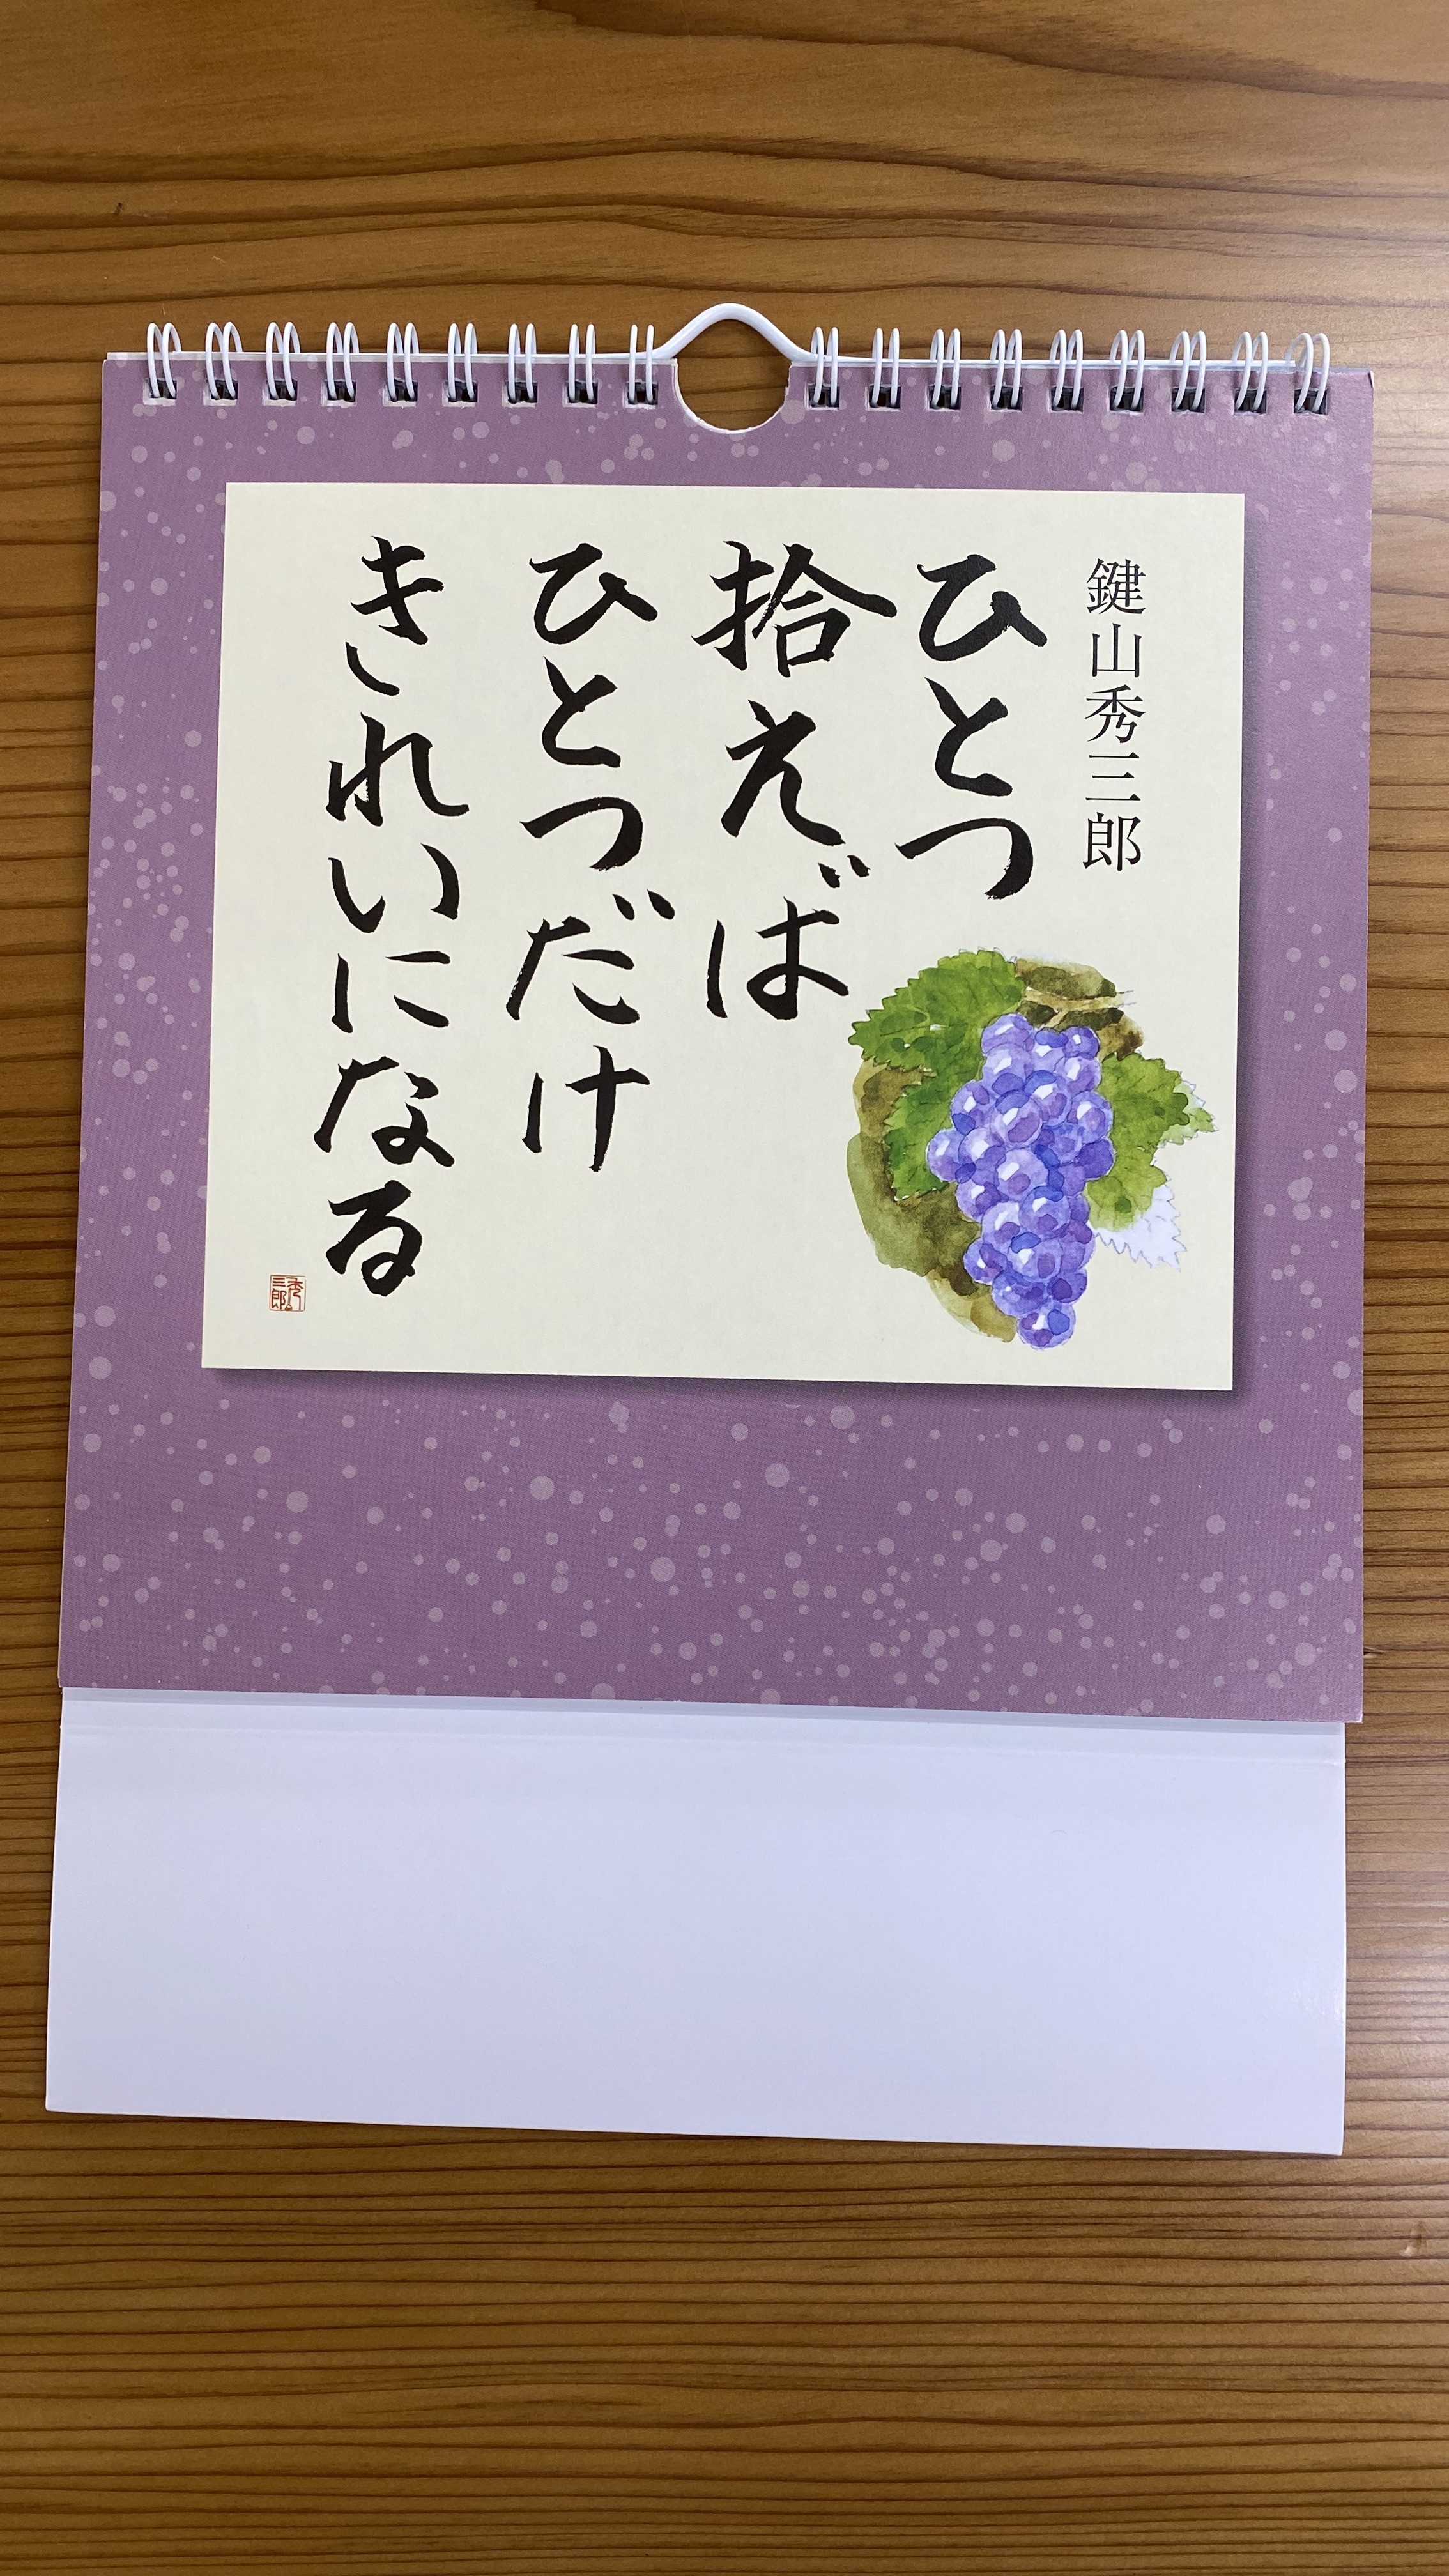 鍵山秀三郎
ひとつ
拾えば
ひとつだけ
きれいになる
秀三郎